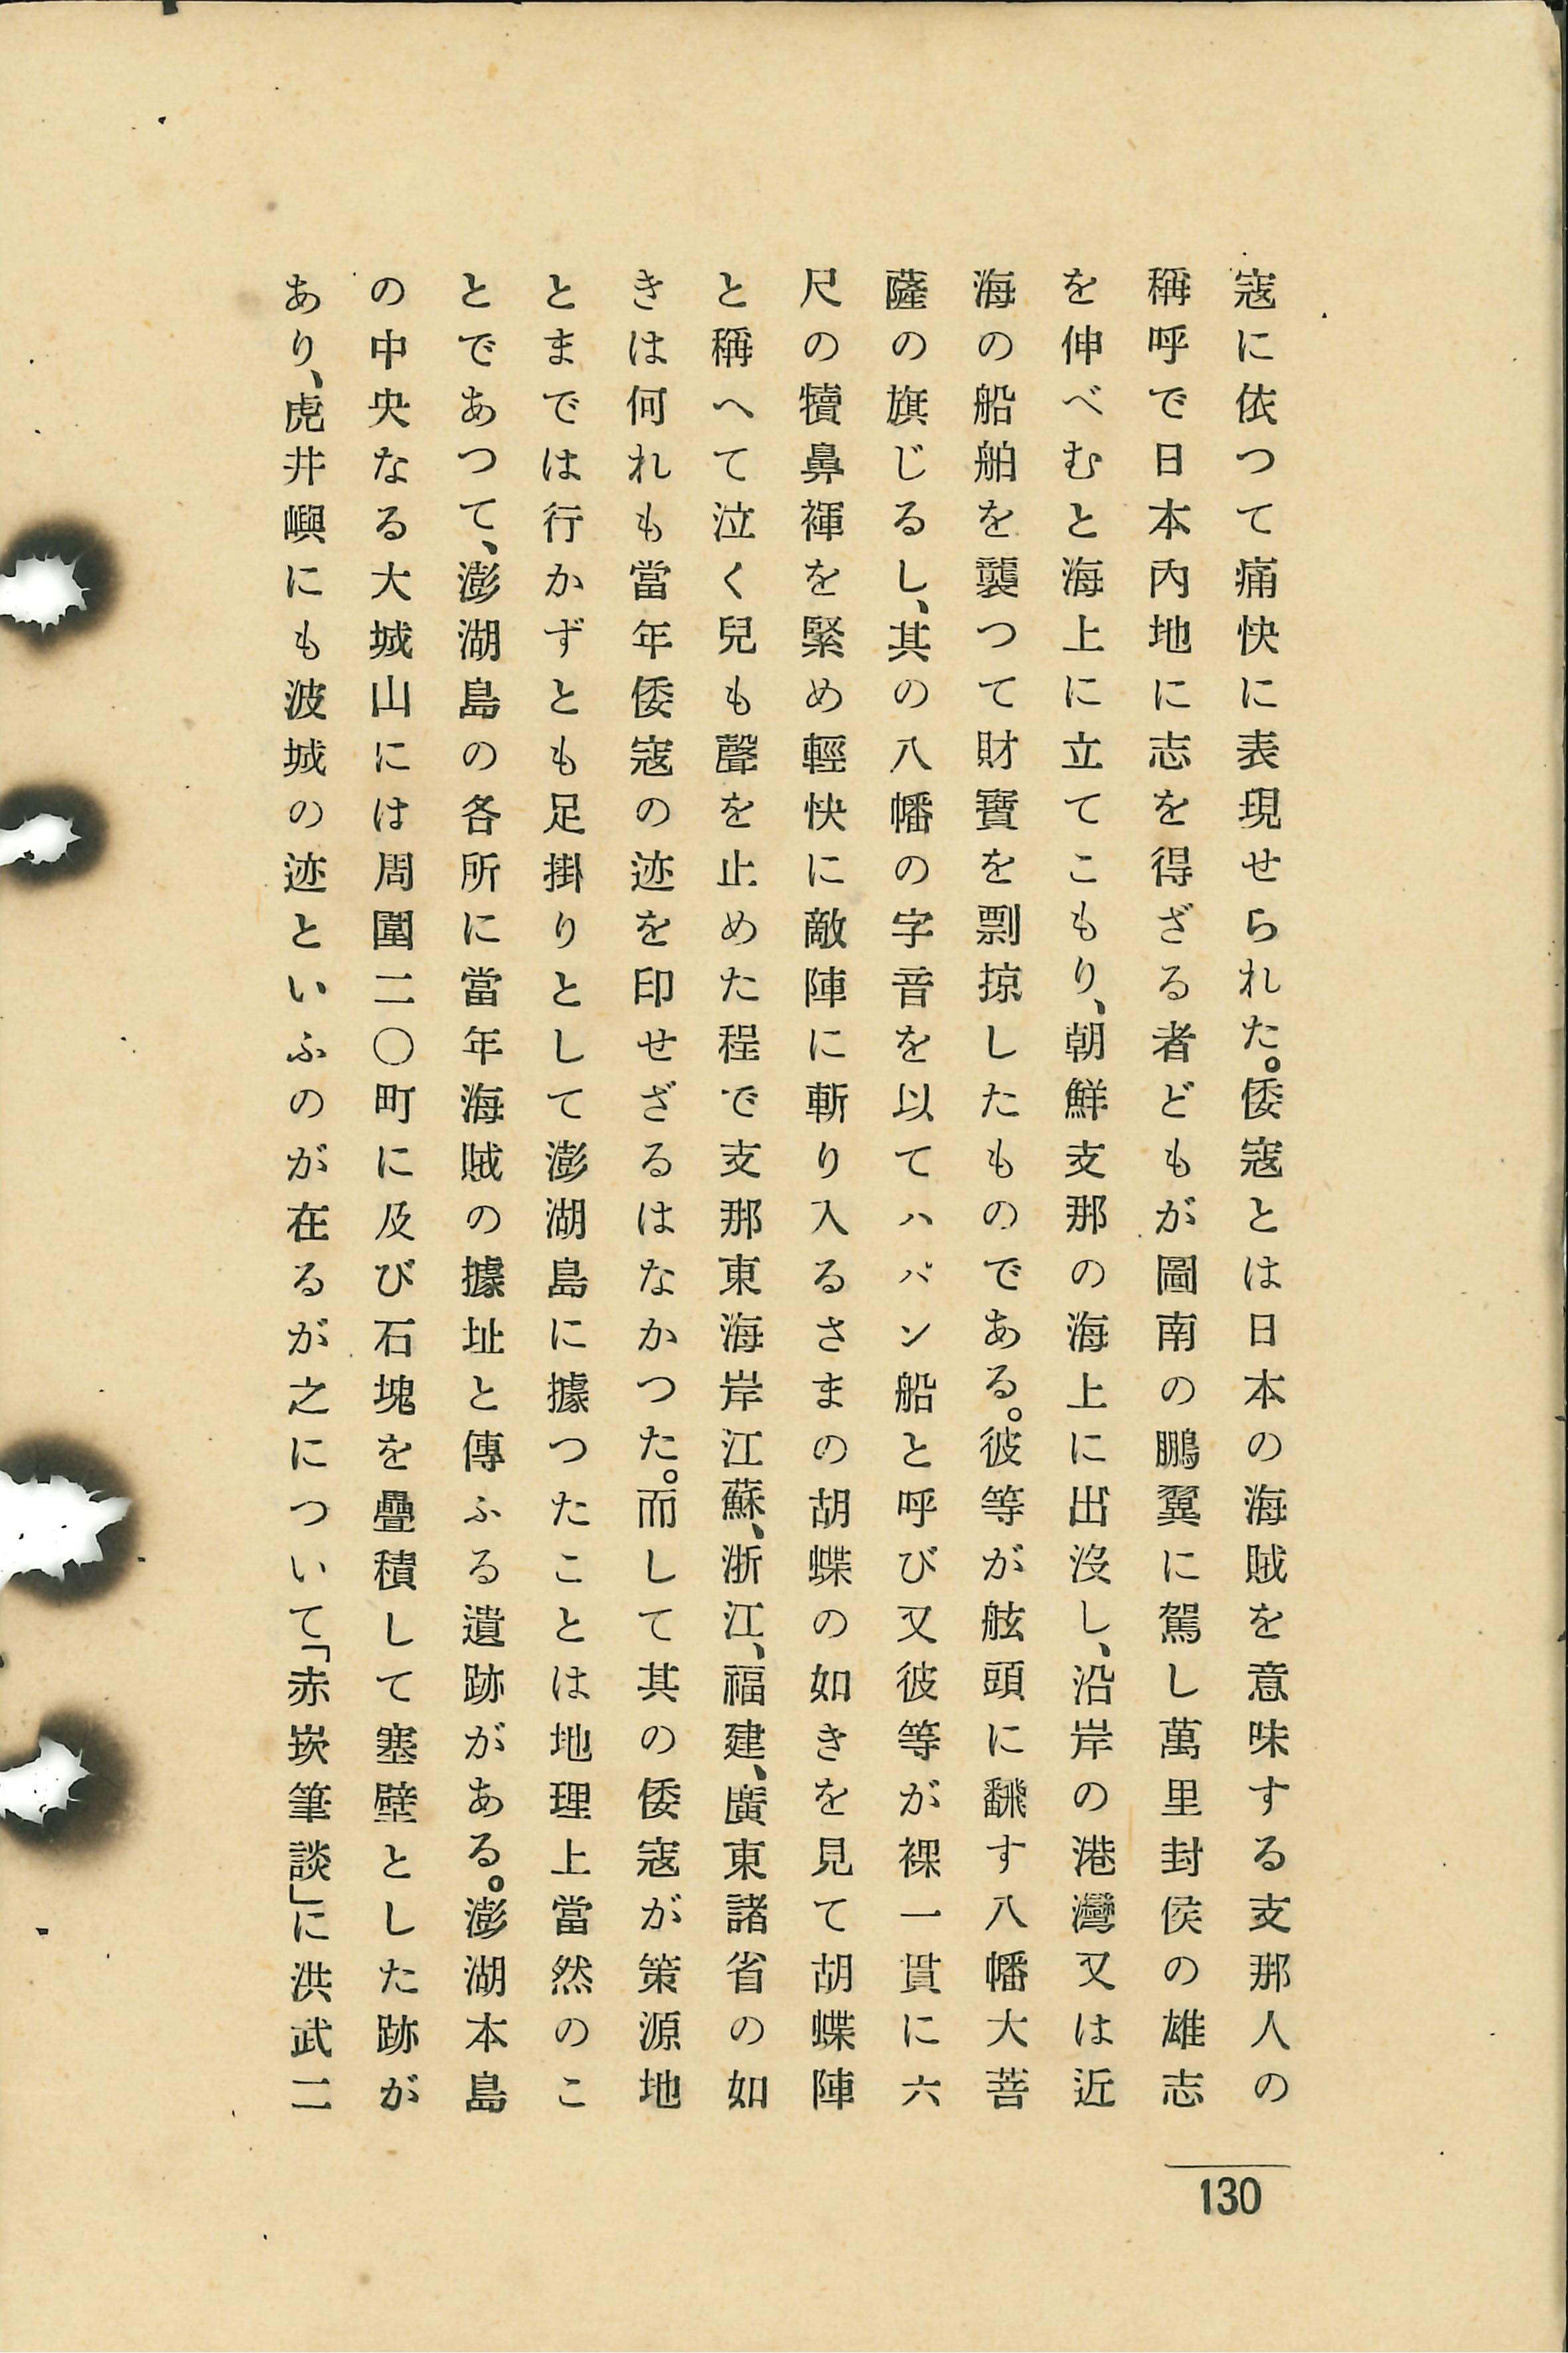 寇に依つて痛快に表現せられた。倭寇とは日本の海賊を意味する支那人の
稱呼で日本內地に志を得ざる者どもが圖南の鵬翼に駕し萬里封侯の雄志
を伸べむと海上に立てこもり、朝鮮支那の海上に出沒し、沿岸の港灣又は近
海の船舶を襲つて財寶を剽掠したものである。彼等が舷頭に飜す八幡大菩
薩の旗じるし、其の八幡の字音を以てハバン船と呼び又彼等が裸一貫に六
尺の犢鼻褌を緊め輕快に敵陣に斬り入るさまの胡蝶の如きを見て胡蝶陣
と稱へて泣く兒も聲を止めた程で支那東海岸江蘇、浙江、福建、廣東諸省の如
きは何れも當年倭寇の迹を印せざるはなかつた。而して其の倭寇が策源地
とまでは行かずとも足掛りとして澎湖島に據つたことは地理上當然のこ
とであつて、澎湖島の各所に當年海賊の據址と傳ふる遺跡がある。澎湖本島
の中央なる大城山には周圍二〇町に及び石塊を疊積して塞壁とした跡が
あり、虎井嶼にも波城の迹といふのが在るが之について「赤崁筆談」に洪武二
130